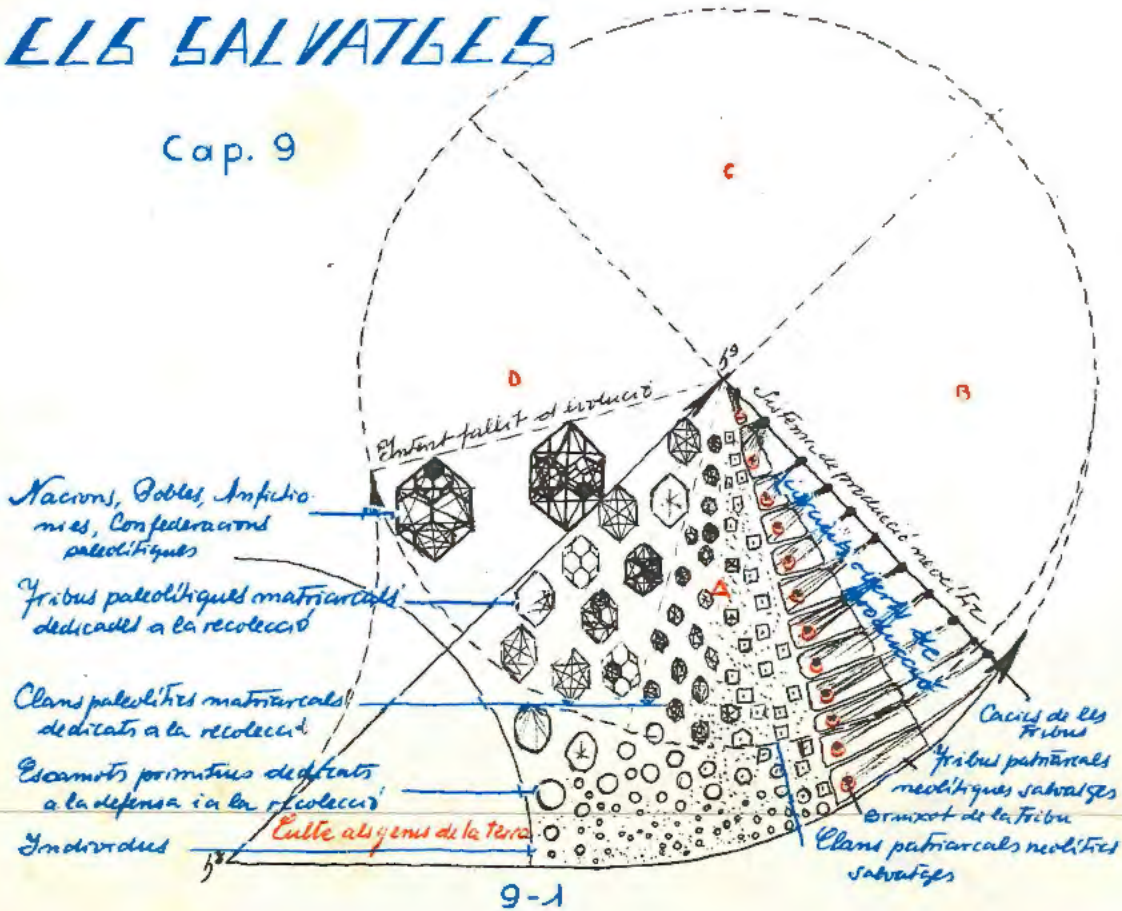 ELS SALVATGES
Cap. 9
C
D
B
h9
Intent fallit d'evolució
Sistema de producció neolític
de producció
A
Nacions, Pobles, Anfictio-
nies, Confederacions
paleolítiques
Tribus paleolítiques matriarcals
dedicades a la recolecció
Clans paleolítics matriarcals
dedicats a la recolecció
Escamots primitius dedicats
a la defensa i a la recolecció
Culte als genis de la terra
Individus
h8
Cacics de les
tribus
Tribus patriarcals
neolítiques salvatges
Bruixot de la tribu
Clans patriarcals neolítics
salvatges
9-1